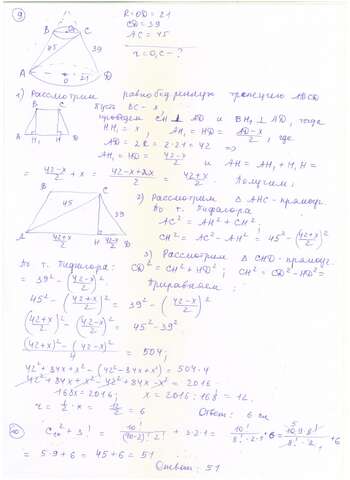 9
B O₁ C
45 39
A O 21 D
R = OD = 21
CD = 39
AC = 45
r = O₁C - ?
1) Рассмотрим равнобедренную трапецию ABCD
B C
A H₁ H D
Пусть BC - x,
проведем CH ⊥ AD и BH₁ ⊥ AD, тогда
HH₁ = x, AH₁ = HD = AD-x/2, где
AD = 2R = 2·21 = 42 ⇒
AH₁ = HD = 42-x/2 и AH = AH₁ + H₁H =
= 42-x/2 + x = 42-x+2x/2 = 42+x/2
Получим:
B C
45 39
A 42+x/2 H 42-x/2 D
2) Рассмотрим △ AHC - прямоуг.
По т. Пифагора
AC² = AH² + CH²;
CH² = AC² - AH² = 45² - (42+x/2)²
3) Рассмотрим △ CHD - прямоуг.
По т. Пифагора: CD² = CH² + HD²; CH² = CD² - HD² =
= 39² - (42-x/2)²
Приравняем:
45² - (42+x/2)² = 39² - (42-x/2)²
(42+x/2)² - (42-x/2)² = 45² - 39²
(42+x)² - (42-x)²/4 = 504;
42² + 84x + x² - (42² - 84x + x²) = 504·4
42² + 84x + x² - 42² + 84x - x² = 2016
168x = 2016; x = 2016 : 168 = 12.
r = 1/2 · x = 12/2 = 6
Ответ: 6 см
10 C₁₀² + 3! = 10!/(10-2)!·2! + 3·2·1 = 10!/8!·2·1 + 6 = 10·9·8!/8!·2 + 6
= 5·9 + 6 = 45 + 6 = 51
Ответ: 51